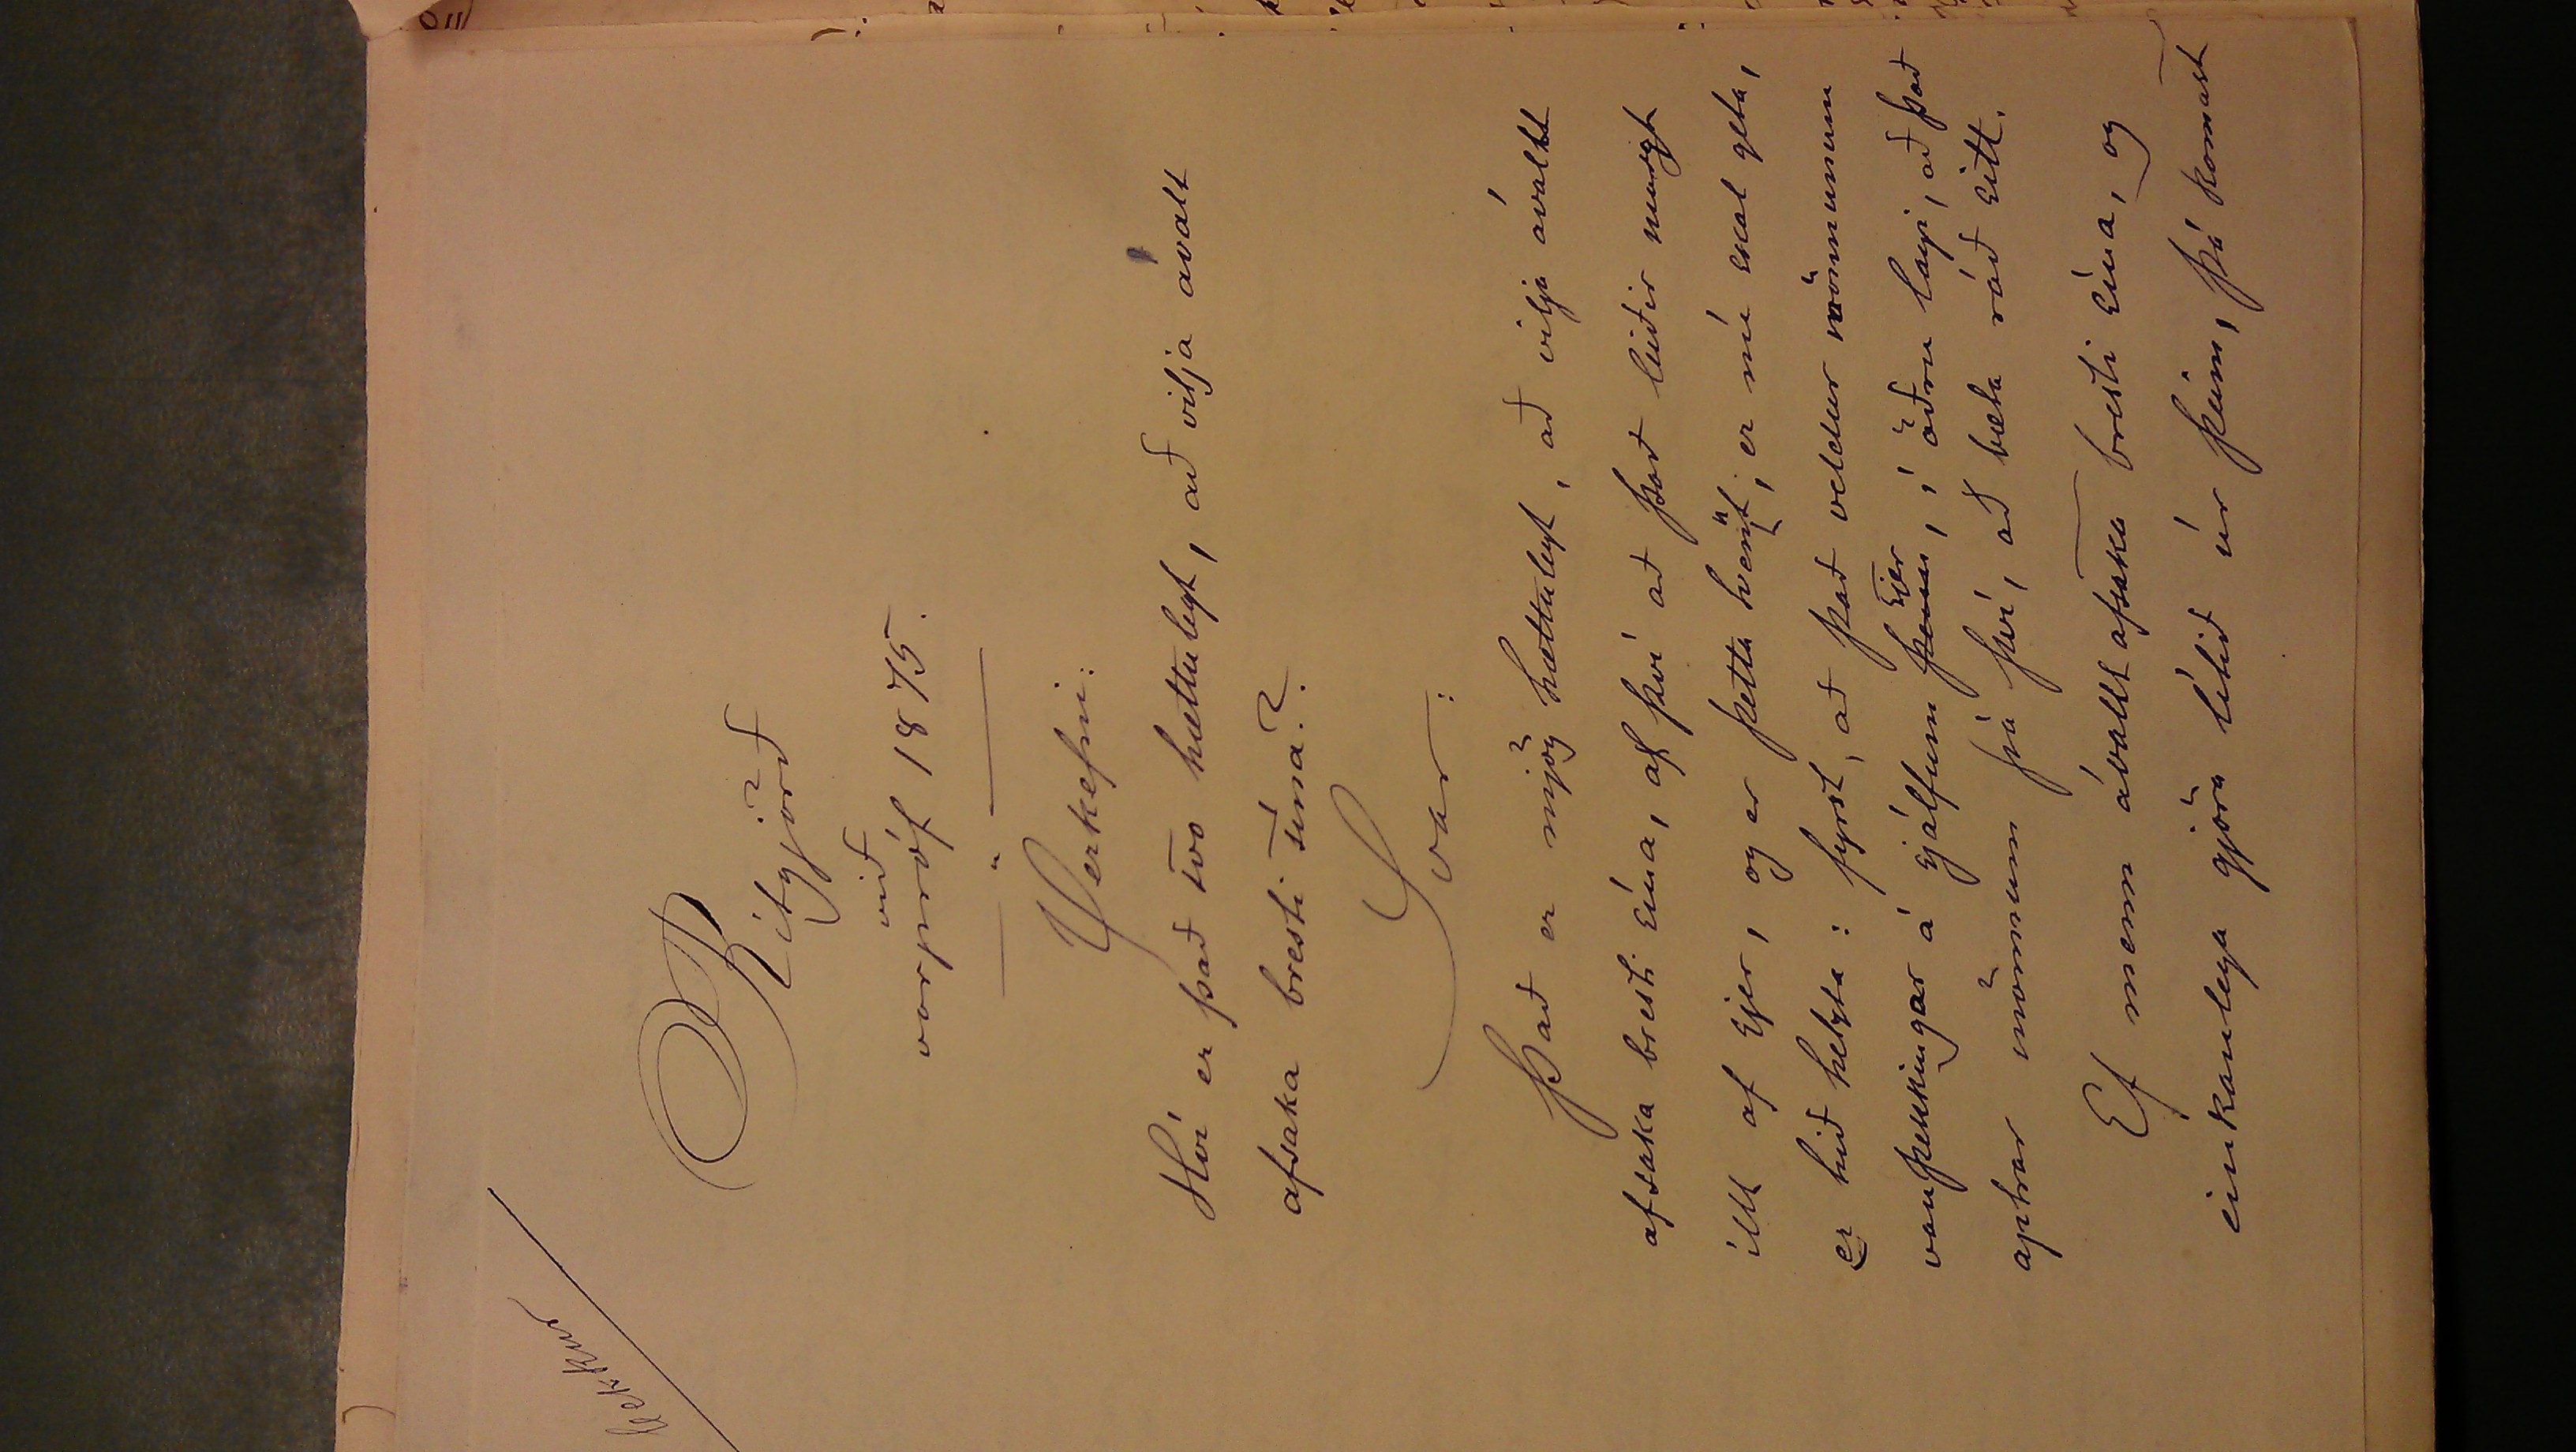 Ritgjörð
við
vorpróf 1875.
Verkefni:
Hví er það svo hættulegt, að vilja ávalt
afsaka bresti sína?
Svar:
Það er mjög hættulegt, að vilja ávallt
afsaka bresti sína, af því að það leiðir margt
illt af sjer, og er þetta hvert; er nú skal geta,
er hið helzta: fyrst, að það veldur mönnunum
vanþekkingar á sjálfum þeim sjer, í öðru lagi, að það
aptrar mönnum frá því, að bæta ráð sitt.
Ef menn ávallt afsaka bresti sína, og
einkanlega gjöra lítið úr þeim, þá komast